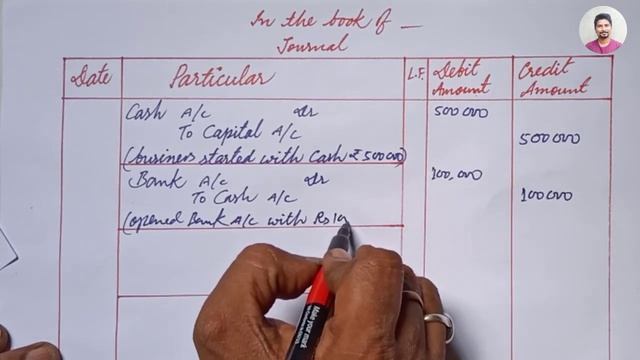 In the book of _
Journal
Date Particular L.F. Debit Amount Credit Amount
Cash A/c Dr 500000
To Capital A/c 500000
(business started with Cash ₹ 500000)
Bank A/c Dr 100,000
To Cash A/c 100000
(opened Bank A/c with Rs 10
Make your mark